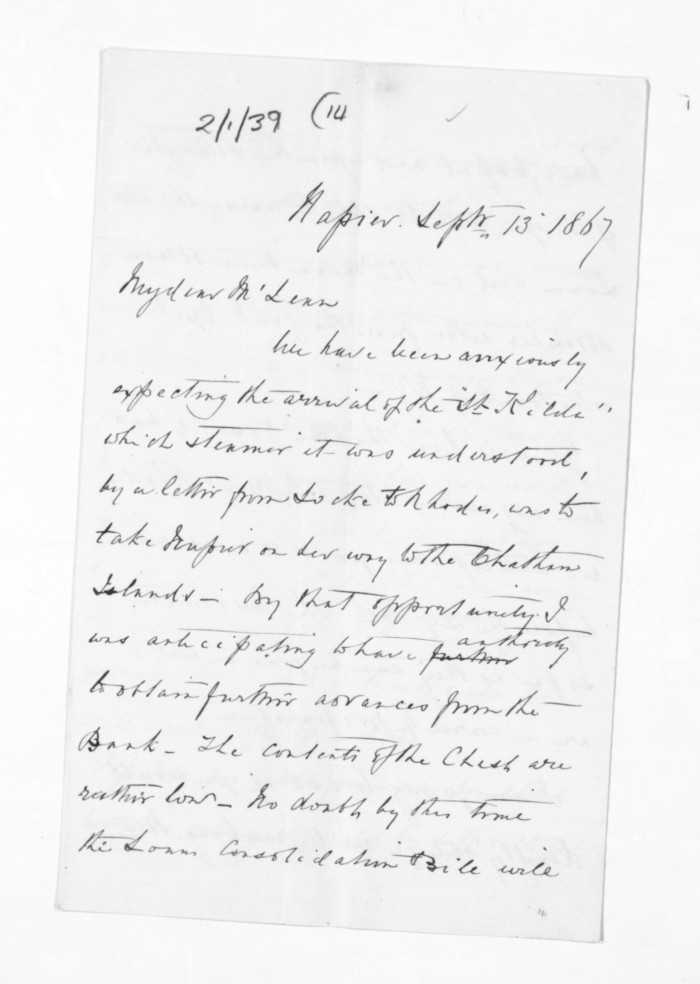 2/1/39 (14
Napier. Septr 13 1867
My dear McLean
We have been anxiously
expecting the arrival of the "St Kilda"
which steamer it was understood,
by a letter from Locke to Rhodes, was to
take Napier on her way to the Chatham
Islands - By that opportunity I
authority
was anticipating to have further
to obtain further advances from the
Bank - The contents of the Chest are
rather low - No doubt by this time
the Loans Consolidation Bill will